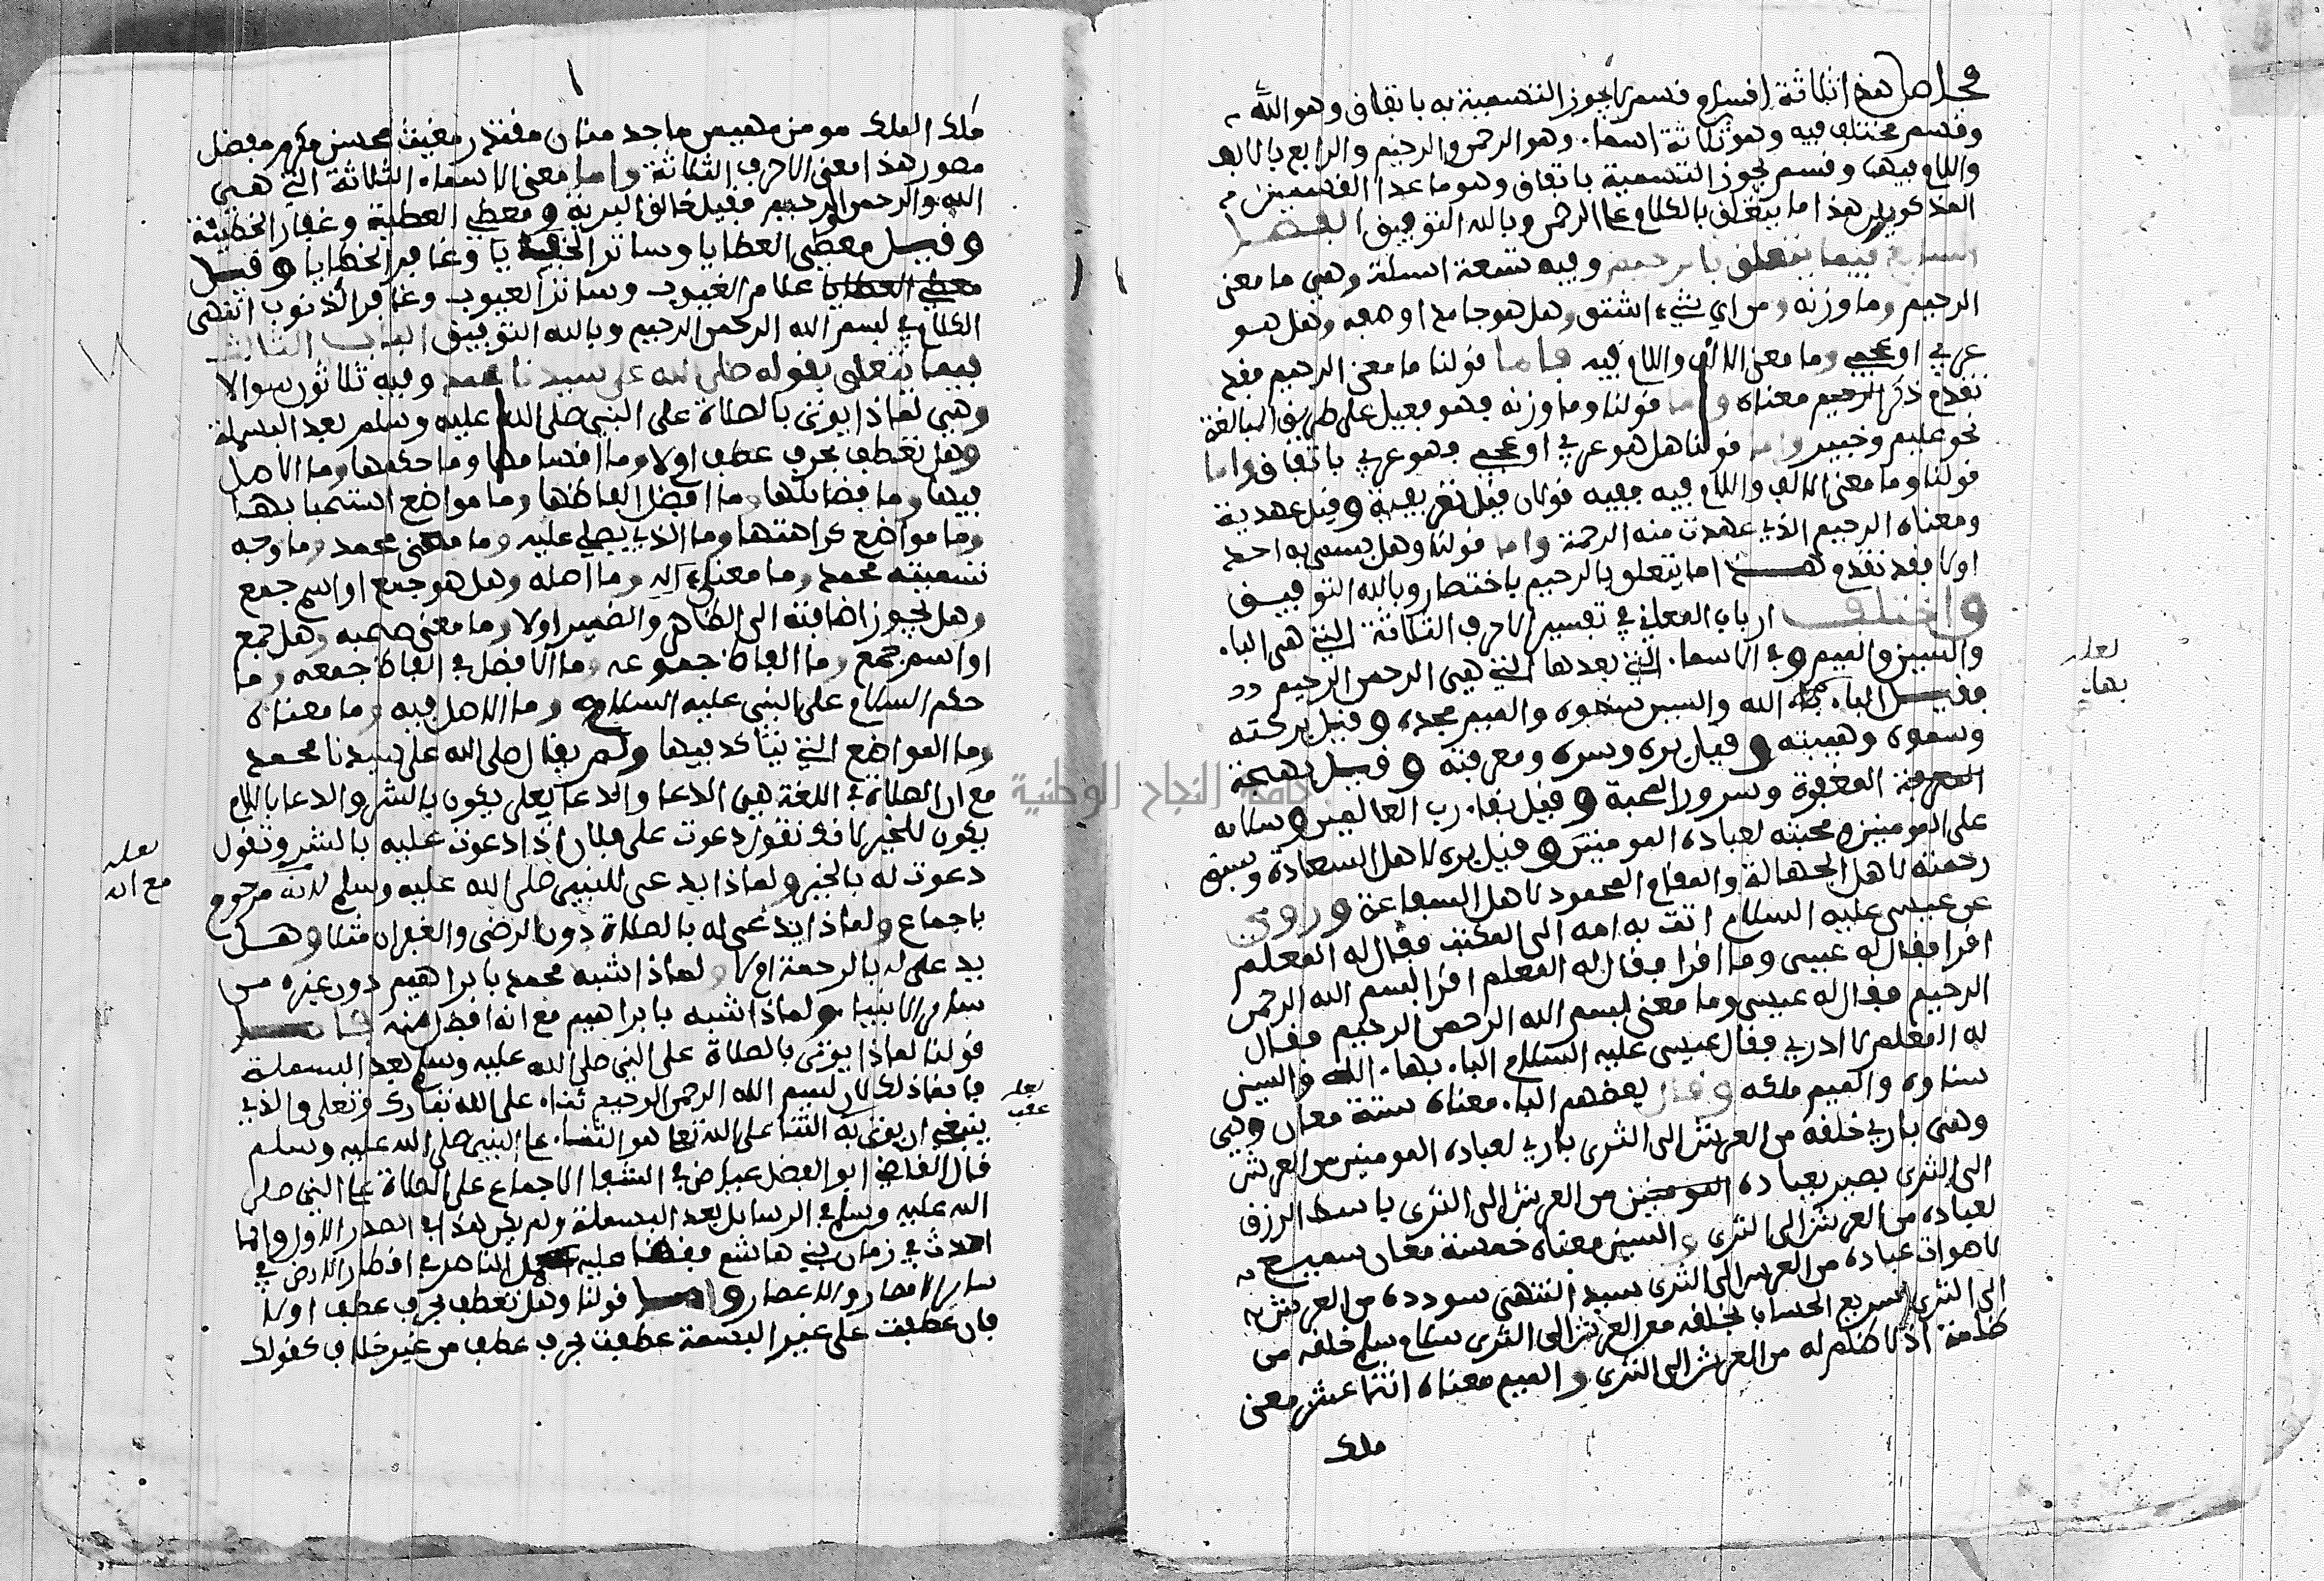 فحاصل هذا ثلاثة اقسام قسم لا يجوز التسمية به باتفاق وهو الله
وقسم مختلف فيه وهو ثلاثة اسما، وهو الرحمن والرحيم والرابع بالالف
واللام فيهما وقسم يجوز التسمية باتفاق وهو ما عدا القسمين
المذكورين هذا ما يتعلق بالكلام على الرحمن وبالله التوفيق الفصل
السابع فيما يتعلق بالرحيم وفيه تسعة اسئلة وهي ما معنى
الرحيم وما وزنه ومن اي شيء اشتق وهل هو جامد او صفة وهل هو
عربي او عجمي وما معنى الالف واللام فيه فاما قولنا ما معنى الرحيم فقد
تقدم ذكر الرحيم معناه واما قولنا وما وزنه فهو فعيل على طريق المبالغة
نحو عليم وخبير واما قولنا هل هو عربي او عجمي فهو عربي باتفاق واما
قولنا وما معنى الالف واللام فيه ففيه قولان قيل تعريفية وقيل عهدية
ومعناه الرحيم الذي عهدت منه الرحمة واما قولنا وهل يسمى به احد
اولا فقد تقدم هذا ما يتعلق بالرحيم باختصار وبالله التوفيق
واختلف ارباب المعاني في تفسير الاحرف الثلاثة التي هي الباء
والسين والميم وفي الاسماء التي بعدها التي هي الرحمن الرحيم
فقيل الباء الله والسين سموه والميم مجده وقيل بركته
وسموه وهيبته وقيل بره وسره ومعرفته وقيل بهجة
المعرفة المغفرة وسرور المحبة وقيل بقاء رب العالمين وسلامه
على المومنين ومحبته لعباده المومنين وقيل بره لاهل السعادة وسبق
رحمته لاهل الجهالة والمقام المحمود لاهل الشفاعة وروي
عن عيسى عليه السلام اتت به امه الى المكتب فقال له المعلم
اقرا فقال له عيسى وما اقرا فقال له المعلم اقرا بسم الله الرحمن
الرحيم فقال له عيسى وما معنى بسم الله الرحمن الرحيم فقال
له المعلم لا ادري فقال عيسى عليه السلام الباء بهاء الله والسين
سناوه والميم ملكه وقال بعضهم الباء معناه ستة معان وهي
وهي باري خلقه من العرش الى الثرى باري لعباده المومنين من العرش
الى الثرى بصير بعباده المومنين من العرش الى الثرى باسط الرزق
لعباده من العرش الى الثرى والسين معناه خمسة معان سميع
لاصوات عباده من العرش الى الثرى سيد انتهى سودده من العرش
الى الثرى سريع الحساب بخلقه من العرش الى الثرى سلام سلم خلقه من
ظلمه اذ لا ظلم له من العرش الى الثرى والميم معناه اثنا عشر معنى
ملك
لعله
بهاء
ملك الملك مومن مهيمن ماجد منان مقتدر مغيث محسن مكرم مفضل
مصور هذا معنى الاحرف الثلاثة واما معنى الاسماء الثلاثة التي هي
الله والرحمن الرحيم فقيل خالق البرية ومعطي العطية وغفار الخطيئة
وقيل معطي العطايا وساتر الخفايا وغافر الخطايا وقيل
معطي العطايا علام الغيوب وساتر العيوب وغافر الذنوب انتهى
الكلام في بسم الله الرحمن الرحيم وبالله التوفيق الباب الثالث
فيما يتعلق بقوله صلى الله على سيدنا محمد وفيه ثلاثون سوالا
وهي لماذا يوتى بالصلاة على النبي صلى الله عليه وسلم بعد البسملة
وهل تعطف بحرف عطف اولا وما اقسامها وما حكمها وما الاصل
فيها وما فضائلها وما افضل الفاظها وما مواضع استحبابها
وما مواضع كراهتها وما الذي يصلى عليه وما معنى محمد وما وجه
تسميته محمد وما معنى آله وما اصله وهل هو جمع او اسم جمع
وهل يجوز اضافته الى الظاهر والضمير اولا وما معنى صحبه وهل جمع
او اسم جمع وما الفاظ جموعه وما الافضل في الفاظ جمعه وما
حكم السلام على النبي عليه السلام وما الاصل فيه وما معناه
وما المواضع التي يتاكد فيها ولم يقال صلى الله على سيدنا محمد
مع ان الصلاة في اللغة هي الدعا والدعا بعلى يكون بالشر والدعا باللام
يكون للخير لانك تقول دعوت على فلان اذا دعوت عليه بالشر وتقول
دعوت له بالخير ولماذا يدعى للنبي صلى الله عليه وسلم لانه مرحوم
باجماع ولماذا يدعى له بالصلاة دون الرضى والغفران مثلا وهل
يدعى له بالرحمة اولا ولماذا شبه محمد بابراهيم دون غيره من
سائر الانبياء ولماذا شبه بابراهيم مع انه افضل منه فاما
قولنا لماذا يوتى بالصلاة على النبي صلى الله عليه وسلم بعد البسملة
فانما ذلك لان بسم الله الرحمن الرحيم ثناء على الله تبارك وتعلى والذي
ينبغي ان يوتى به الثنا على الله تعا هو الثناء على النبي صلى الله عليه وسلم
قال القاضي ابو الفضل عياض في الشفا الاجماع على الصلاة على النبي صلى
الله عليه وسلم في الرسائل بعد البسملة ولم يكن هذا في الصدر الاول وانما
احدث في زمان بني هاشم فمضا عليه عمل الناس في اقطار الارض في
سائر الامصار والاعصار واما قولنا وهل تعطف بحرف عطف اولا
فان عطفت على غير البسملة عطفت بحرف عطف من غير خلاف كقولك
لعله
مع انه
لعله
عقب
جامعة النجاح الوطنية